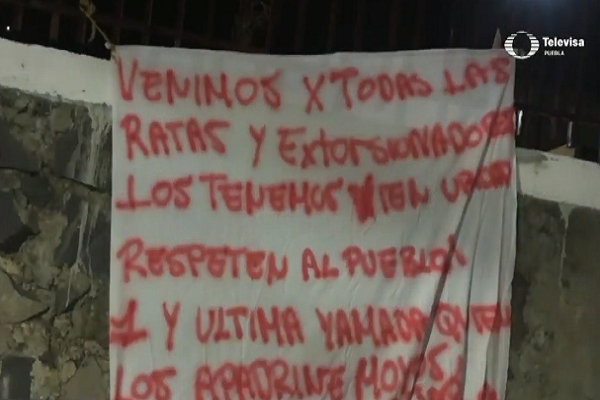 Televisa
PUEBLA
VENIMOS X TODAS LAS
RATAS Y EXTORSIONADORES
LOS TENEMOS VIEN
RESPETEN AL PUEBLO
1 Y ULTIMA YAMADA QUIEN
LOS APADRINE MOYOS